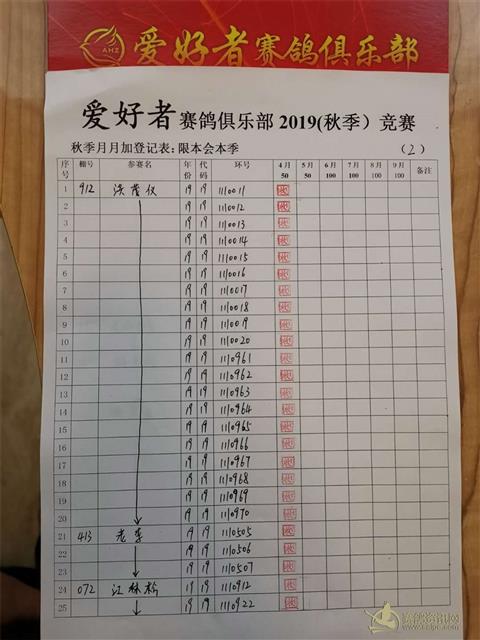 AHZ 爱好者赛鸽俱乐部
爱好者赛鸽俱乐部2019(秋季)竞赛
秋季月月加登记表:限本会本季 (2)
序号 棚号 参赛名 年份 代码 环号 4月50 5月50 6月100 7月100 8月100 9月100 备注
1 912 19 19 1110011
2 19 19 1110012
3 19 19 1110013
4 19 19 1110014
5 19 19 1110015
6 19 19 1110016
7 19 19 1110017
8 19 19 1110018
9 19 19 1110019
10 19 19 1110020
11 19 19 1110961
12 19 19 1110962
13 19 19 1110963
14 19 19 1110964
15 19 19 1110965
16 19 19 1110966
17 19 19 1110967
18 19 19 1110968
19 19 19 1110969
20 19 19 1110970
21 413 老李 19 19 1110505
22 19 19 1110506
23 19 19 1110507
24 072 江林松 19 19 1110912
25 19 19 1110922
赛鸽资讯网